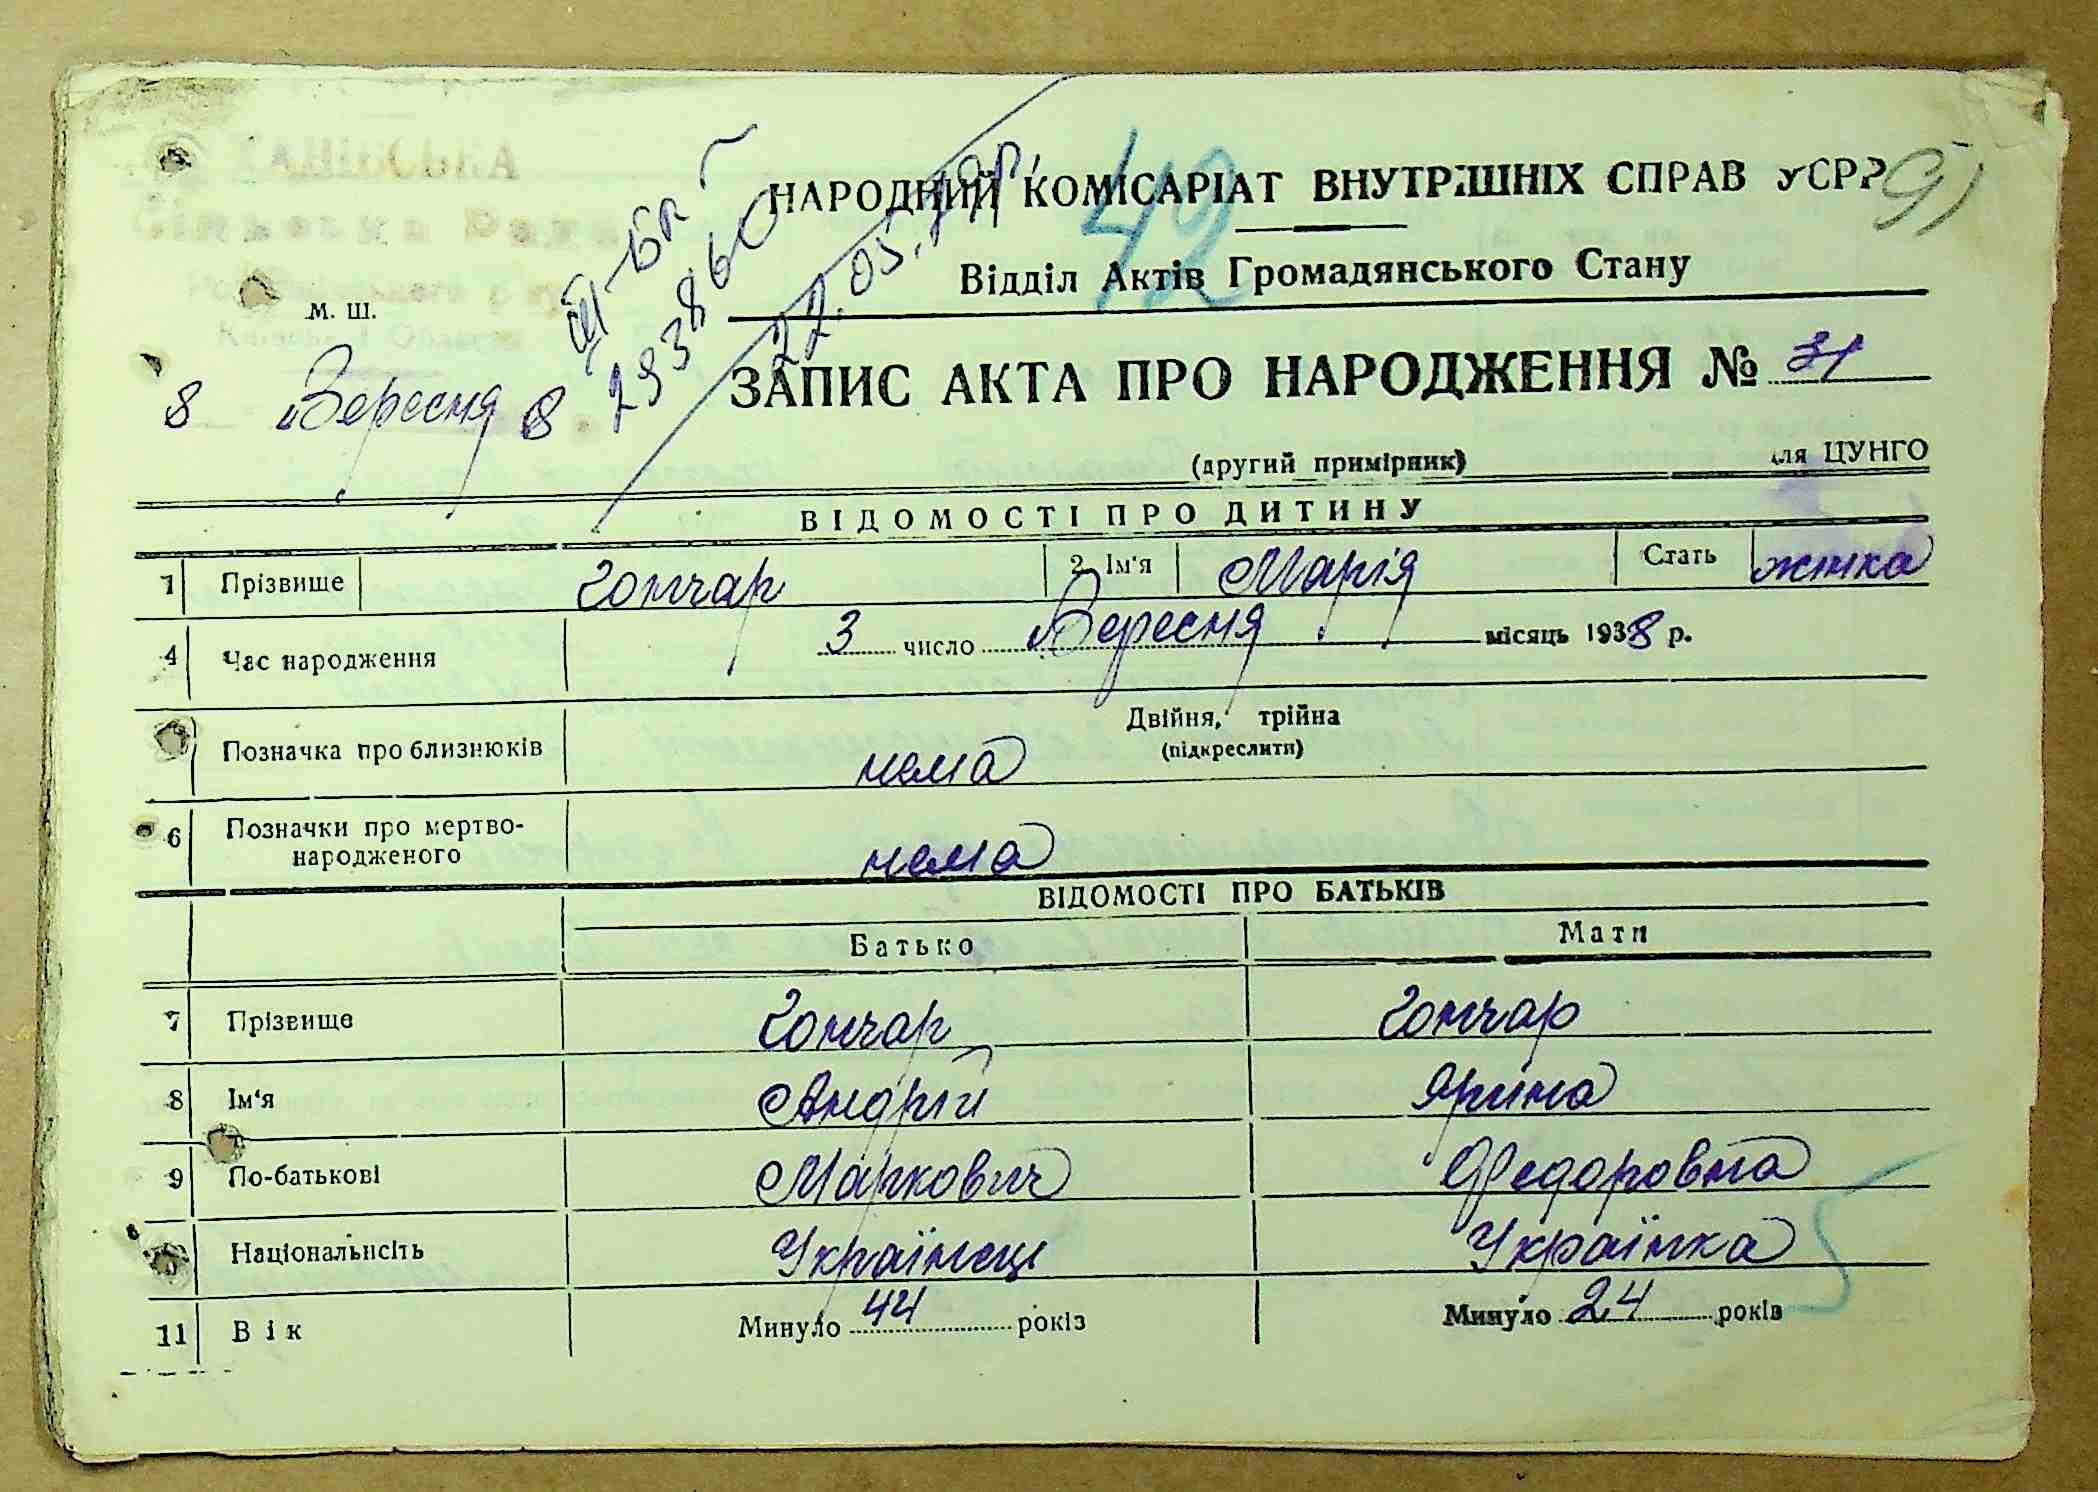 НАРОДНИЙ КОМІСАРІАТ ВНУТРІШНІХ СПРАВ УСРР
42
Відділ Актів Громадянського Стану
м. ш.
III-БК
293860
22.05.79р.
8 Вересня 8
ЗАПИС АКТА ПРО НАРОДЖЕННЯ № 31
(другий примірник) для ЦУНГО
ВІДОМОСТІ ПРО ДИТИНУ
1 Прізвище Гончар 2 Ім'я Марія Стать жінка
4 Час народження 3 число Вересня місяць 1938 р.
Позначка про близнюків Двійня, трійна
(підкреслити)
нема
6 Позначки про мертво-
народженого нема
ВІДОМОСТІ ПРО БАТЬКІВ
Батько Мати
7 Прізвище Гончар Гончар
8 Ім'я Андрій Ярина
9 По-батькові Маркович Федоровна
Національність Українець Українка
11 Вік Минуло 44 років Минуло 24 років